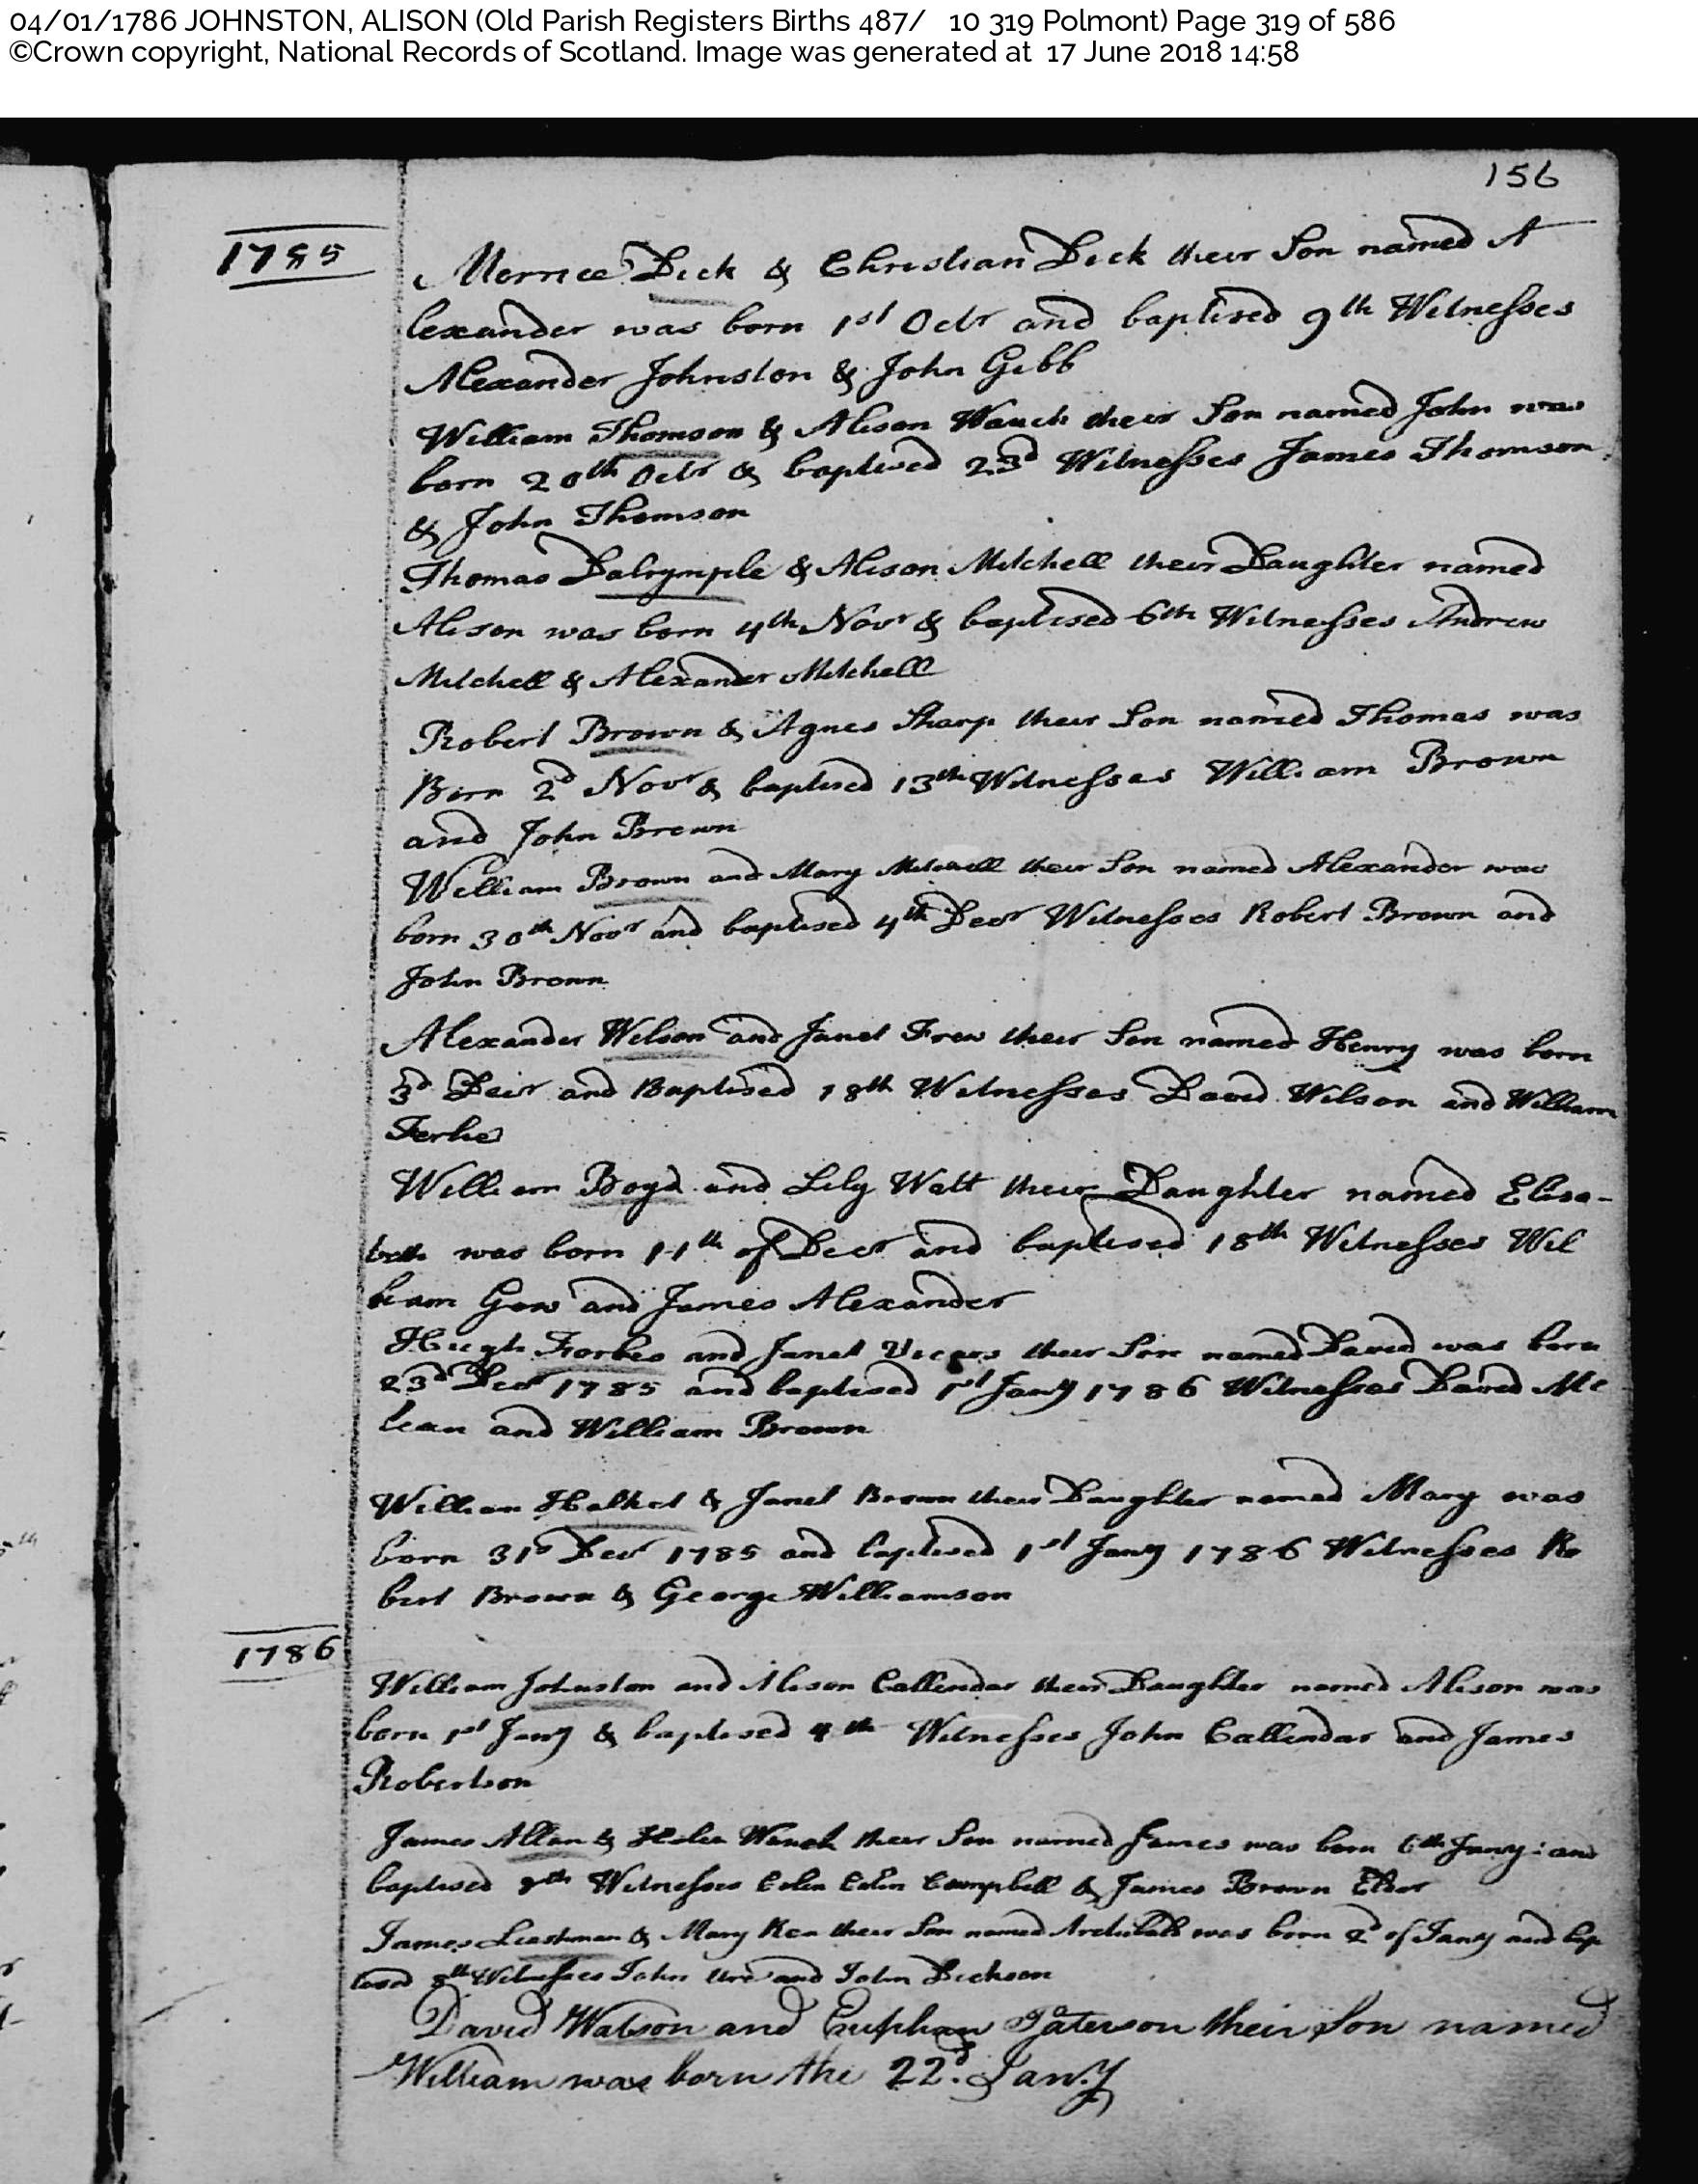 04/01/1786 JOHNSTON, ALISON (Old Parish Registers Births 487/ 10 319 Polmont) Page 319 of 586
©Crown copyright, National Records of Scotland. Image was generated at 17 June 2018 14:58
156
1785
Morrice Dick & Christian Dick their Son named A
lexander was born 1st Octr and baptised 9th Witnesses
Alexander Johnston & John Gibb
William Thomson & Alison Wauch their Son named John was
born 20th Octr & baptised 23d Witnesses James Thomson
& John Thomson
Thomas Dalrymple & Alison Mitchell their Daughter named
Alison was born 4th Novr & baptised 6th Witnesses Andrew
Mitchell & Alexander Mitchell
Robert Brown & Agnes Sharp their Son named Thomas was
Born 2d Novr & baptised 13th Witnesses William Brown
and John Brown
William Brown and Mary Mitchell their Son named Alexander was
born 30th Novr and baptised 4th Decr Witnesses Robert Brown and
John Brown
Alexander Wilson and Janet Frew their Son named Henry was born
3d Decr and Baptised 18th Witnesses David Wilson and William
William Boyd and Lily Watt their Daughter named Elisa-
beth was born 11th of Decr and baptised 18th Witnesses Wil
liam Gow and James Alexander
Hugh Forbes and Janet their Son named David was born
23d Decr 1785 and baptised 1st Jany 1786 Witnesses David Mc
lean and William Brown
William Halket & Janet Brown their Daughter named Mary was
born 31s Decr 1785 and baptised 1st Jany 1786 Witnesses Ro
bert Brown & George Williamson
1786
William Johnston and Alison Callendar their Daughter named Alison was
born 1st Jany & baptised 4th Witnesses John Callendar and James
Robertson
James Allan & Helen Wauch their Son named James was born 6th Jany: and
baptised 8th Witnesses Colin Colin Campbell & James Brown Elder
James Leishman & Mary Ker their Son named Archibald was born 2d of Jany and bap
tised 8th Witnesses John Ure and John Dickson
David Watson and Euphan Paterson their Son named
William was born the 22d. Jany